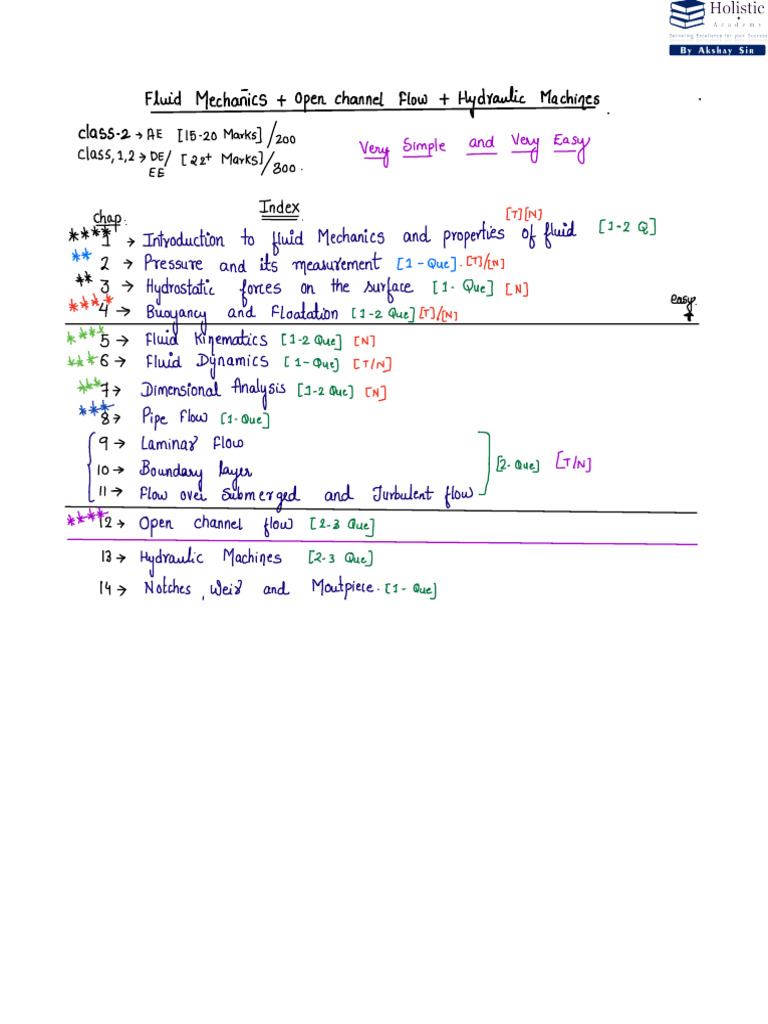 Holistic
Academy
Delivering Excellence for your Success
By Akshay Sir
Fluid Mechanics + Open channel Flow + Hydraulic Machines
class-2 → AE [15-20 Marks]/200
Class,1,2 → DE/EE [22+ Marks]/300.
Very Simple and Very Easy
Index
chap.
**** 1 → Introduction to fluid Mechanics and properties of fluid [T][N] [1-2 Q]
** 2 → Pressure and its measurement [1-Que]. [T]/[N]
** 3 → Hydrostatic forces on the surface [1-Que] [N]
**** 4 → Buoyancy and Floatation [1-2 Que] [T]/[N]
easy
**** 5 → Fluid Kinematics [1-2 Que] [N]
*** 6 → Fluid Dynamics [1-Que] [T/N]
*** 7 → Dimensional Analysis [1-2 Que] [N]
*** 8 → Pipe Flow [1-Que]
9 → Laminar Flow
10 → Boundary layer
11 → Flow over Submerged and Turbulent flow
[2-Que] [T/N]
**** 12 → Open channel flow [2-3 Que]
13 → Hydraulic Machines [2-3 Que]
14 → Notches, Weir and Moutpiece. [1-Que]